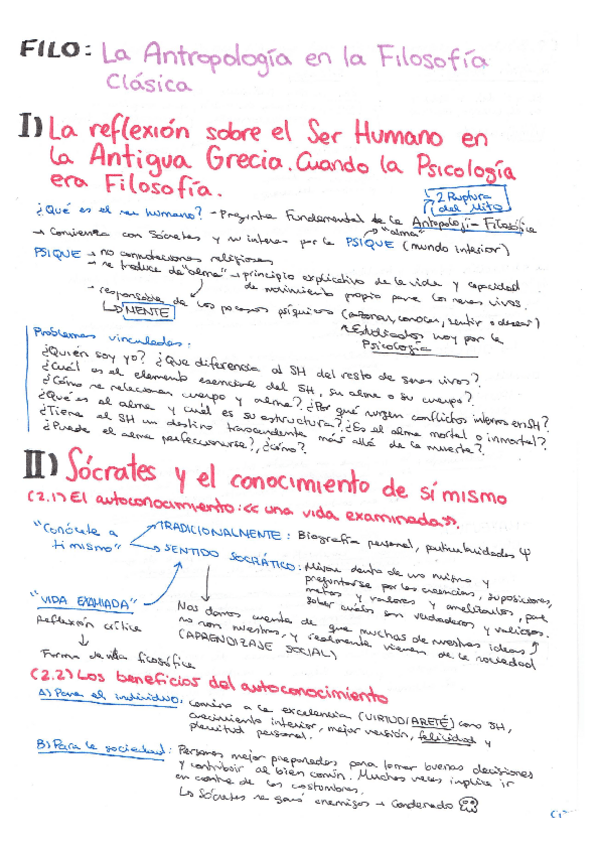 FILO: La Antropología en la Filosofía
Clásica
I) La reflexión sobre el Ser Humano en
la Antigua Grecia. Cuando la Psicología
era Filosofía.
2 Ruptura
del Mito
¿Qué es el ser humano? → Pregunta Fundamental de la Antropología Filosófica
"alma"
→ Comienza con Sócrates y su interés por la PSIQUE (mundo interior)
PSIQUE → no connotaciones religiosas
→ se traduce de "alma" → principio explicativo de la vida y capacidad
de movimiento propio para los seres vivos.
→ responsable de los procesos psíquicos (razonar, conocer, sentir o desear)
↳ MENTE
Estudiados hoy por la
Psicología
Problemas vinculados:
¿Quién soy yo? ¿Que diferencia al SH del resto de seres vivos?
¿Cuál es el elemento esencial del SH, su alma o su cuerpo?
¿Cómo se relacionan cuerpo y alma? ¿Por qué surgen conflictos internos en SH?
¿Qué es el alma y cuál es su estructura? ¿Es el alma mortal o inmortal?
¿Tiene el SH un destino trascendente más allá de la muerte?
¿Puede el alma perfeccionarse?, ¿cómo?
II) Sócrates y el conocimiento de sí mismo
(2.1) El autoconocimiento: «una vida examinada».
"Conócete a
ti mismo"
TRADICIONALMENTE: Biografía personal, particularidades Ψ
SENTIDO SOCRÁTICO: Mirar dentro de uno mismo y
preguntarse por las creencias, suposiciones,
metas y valores y analizarlos, para
saber cuáles son verdaderos y valiosos.
"VIDA EXAMIADA"
Reflexión crítica
↓
Forma de vida filosófica
Nos damos cuenta de que muchas de nuestras ideas
no son nuestras, y realmente vienen de la sociedad
(APRENDIZAJE SOCIAL)
(2.2) Los beneficios del autoconocimiento
A) Para el individuo: camino a la excelencia (VIRTUD/ARETÉ) como SH,
crecimiento interior, mejor versión, felicidad y
plenitud personal.
B) Para la sociedad: Personas mejor preparadas para tomar buenas decisiones
y contribuir al bien común. Muchas veces implica ir
en contra de las costumbres.
↳ Sócrates se ganó enemigos → Condenado